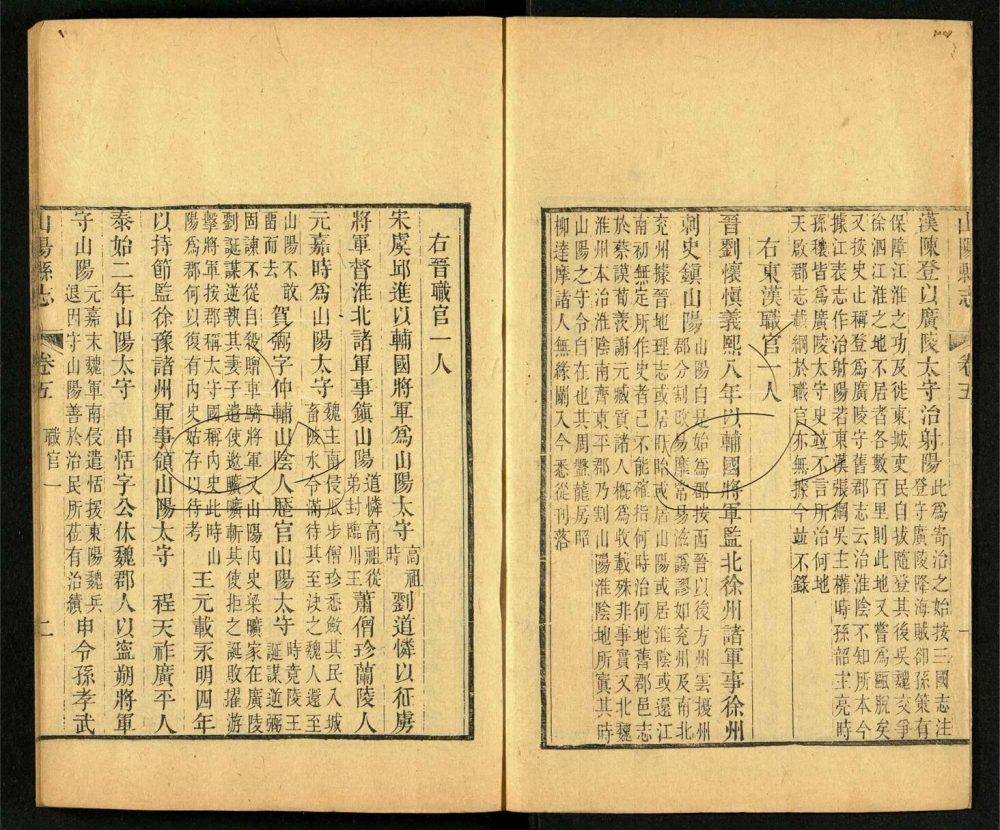 山陽縣志 卷五 一
漢陳登以廣陵太守治射陽
此爲寄治之始按三國志注
登守廣陵降海賊卻孫策有
保障江淮之功及徙東城吏民自拔隨登其後吳魏交爭
徐泗江淮之地不居者各數百里則此地又嘗爲甌脫矣
又按史止稱登爲廣陵守舊郡志云治淮陰不知所本今
據江表志作治射陽若東漢張綱吳主權時孫韶主亮時
孫穰皆爲廣陵太守史並不言所治何地
天啟郡志載綱於職官亦無據今並不錄
右東漢職官一人
晉劉懷慎義熙八年以輔國將軍監北徐州諸軍事徐州
刺史鎮山陽
山陽自是始爲郡按西晉以後方州雲擾州
郡分割改易靡常易滋譌謬如兗州及南北
兗州據晉地理志或居盱眙或居山陽或居淮陰或還江
南初無定所作史者已不能確指何時治何地舊郡邑志
於蔡謨荀羨謝元臧質諸人概爲收載殊非事實又北魏
淮州本治淮陰南齊東平郡乃割山陽淮陰地所寘其時
山陽之守令自在也其周盤龍居昭
柳達摩諸人無緣闌入今悉從刊落
右晉職官一人
宋虞邱進以輔國將軍爲山陽太守
高祖
時
劉道憐以征虜
將軍督淮北諸軍事鎮山陽
道憐高祖從
弟封臨川王
蕭僧珍蘭陵人
元嘉時爲山陽太守
魏主南侵瓜步僧珍悉斂其民入城
畜陂水令滿待其至決之魏人還至
山陽不敢
畱而去
賀弼字仲輔山陰人歷官山陽太守
時竟陵王
誕謀逆弼
固諫不從自殺贈車騎將軍又山陽內史梁曠家在廣陵
劉誕謀逆執其妻子遣使邀曠曠斬其使拒之誕敗擢游
擊將軍按郡稱太守國稱內史此時山
陽爲郡何以復有內史姑存以待考
王元載永明四年
以持節監徐豫諸州軍事領山陽太守
程天祚廣平人
泰始二年山陽太守
申恬字公休魏郡人以寧朔將軍
守山陽
元嘉末魏軍南侵遣恬援東陽魏兵
退因守山陽善於治民所莅有治績
申令孫孝武
山陽縣志 卷五 職官一 二